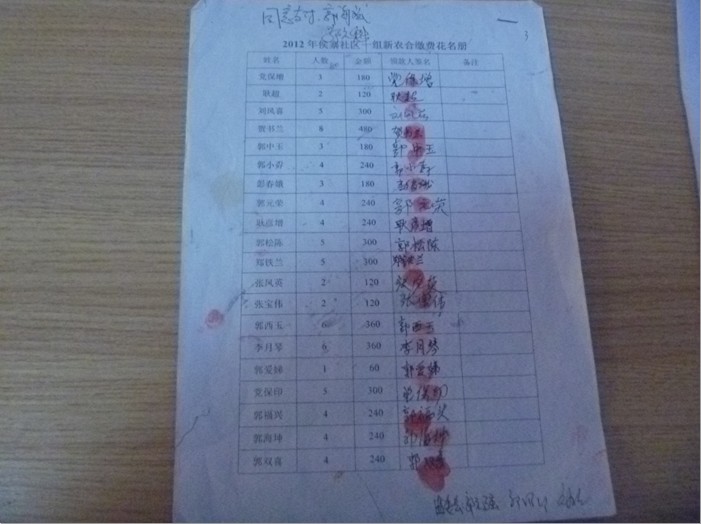 同意支付
3
2012年侯浏社区一组新农合缴费花名册
姓名 人数 金额 领款人签名 备注
党保增 3 180 党保增
耿超 2 120 耿超
刘凤春 5 300
贺书兰 8 480
郭中玉 3 180 郭中玉
郭小春 4 240 郭小春
彭春娥 3 180
郭元荣 4 240 郭元荣
耿彦增 4 240 耿彦增
郭松陈 5 300 郭松陈
郑秋兰 5 300
张凤英 2 120
张宝伟 2 120 张宝伟
郭西玉 6 360 郭西玉
李月琴 6 360 李月琴
郭爱娣 1 60
党保印 5 300 党保印
郭福兴 4 240 郭福兴
郭海坤 4 240 郭海坤
郭双喜 4 240 郭双喜